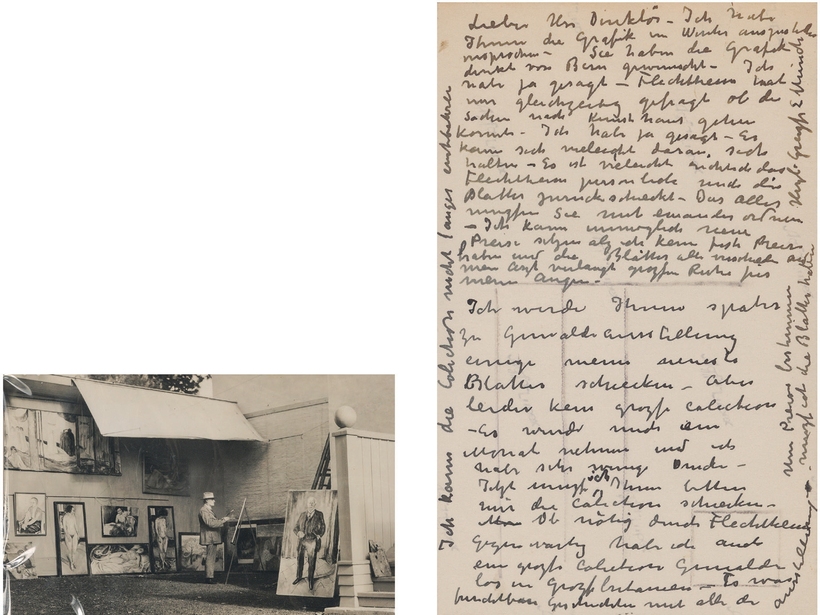 Lieber Herr Direktör - Ich habe
Ihnen die Grafik im Winter auszustellen
versprochen - Sie haben die Grafik
direkt von Bern gewünscht - Ich
habe ja gesagt - Flechtheim hat
mir gleichzeitig gefragt ob die
Sachen nach Kunsthaus gehen
konnte - Ich habe ja gesagt - Es
kann sich vieleicht daran, sich
halten - Es ist vieleicht das
Flechtheim personlich die
Blatter zurückscheckt - Das alles
Sie mit einander ordnen
- Ich kann unmoglich neue
Preise setzen als ich kein feste Preise
haben und die Blätter alle
mein Arzt verlangt grosse Ruhe für
meine Augen -
Ich werde Ihnen spater
zu Gemäldeausstellung
einige meine neueste
Blatter schecken - Aber
leider kein grosse colection
- Es würde mich ein
Monat nehmen und ich
habe sehr wenig Drucke -
Jetzt muss ich Ihnen bitten
mir die Colection schecken -
Ob nötig durch Flechtheim
gegenwartig habe ich auch
ein grosse Colection Gemälde
los in Grossbritanien - Es war
furchtbare Geschichten mit alle die
Ausstellung - muss ich die Blatter haben
Ich kann die Colection nicht langer entbehren